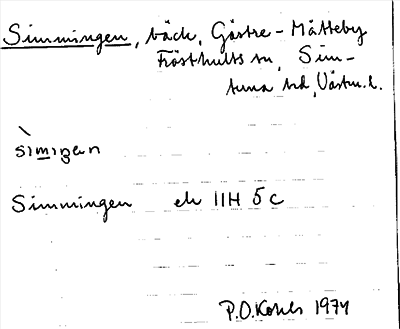 Simmingen, bäck, Gästre-Mälteby
Frösthults sn, Sim-
tuna hd, Västm. l.
sìmiŋen
Simmingen ek 11H 5c
P.O. Kohls 1974